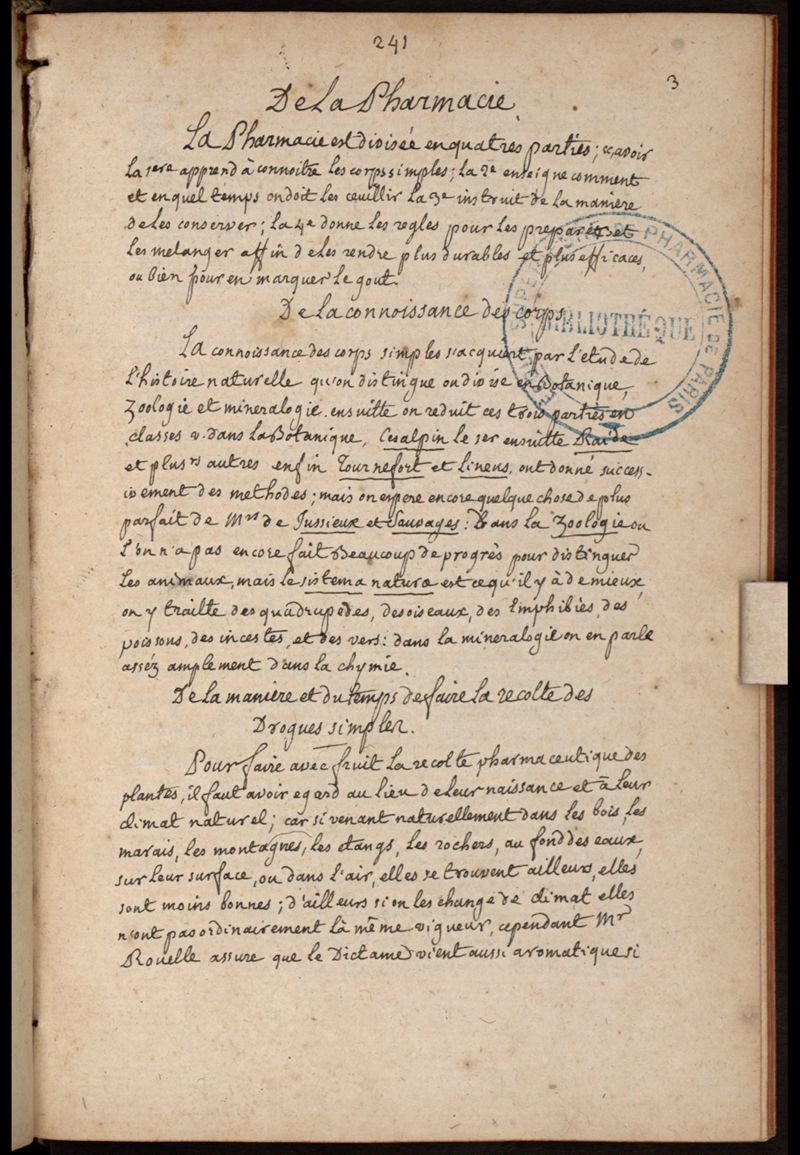 241
3
De La Pharmacie
La Pharmacie est divisée en quatres parties; sçavoir
la 1ere apprend à connoitre les corps simples; la 2e enseigne comment
et en quel temps on doit les ceuillir la 3e instruit de la manière
de les conserver; la 4e donne les regles pour les preparer et
les melanger affin de les rendre plus durables et plus efficaces,
ou bien pour en marquer le gout.
De la connoissance des corps
La connoissance des corps simples s'acquiert par l'etude de
l'histoire naturelle qu'on distingue ou divise en Botanique,
Zoologie et mineralogie. ensuitte on reduit ces trois parties en
classes v. dans la Botanique, Cesalpin le 1er ensuitte Raide
et plusrs autres enfin Tournefort et Lineus, ont donné succes-
sivement des methodes; mais on espere encore quelque chose de plus
parfait de Mrs de Jussieux et Sauvages: Dans la Zoologie ou
l'on n'a pas encore fait Beaucoup de progrès pour distinguer
les animaux, mais le sistema naturæ est ce qu'il y à de mieux,
on y traitte des quadrupedes, des oiseaux, des Emphibies, des
poissons, des incestes, et des vers: dans la mineralogie on en parle
asséz amplement dans la chymie.
De la manière et du temps de faire la recolte des
Drogues simples.
Pour faire avec fruit la recolte pharmaceutique des
plantes, il faut avoir egard au lieu de leur naissance et à leur
climat naturel; car si venant naturellement dans les bois, les
marais, les montagnes, les etangs, les rochers, au fond des eaux,
sur leur surface, ou dans l'air, elles se trouvent ailleurs, elles
sont moins bonnes; d'ailleurs si on les change de climat elles
n'ont pas ordinairement la même vigueur, cependant Mr
Rouelle assure que le Dictame vient aussi aromatique si
PHARMACIE DE PARIS
BIBLIOTHÈQUE